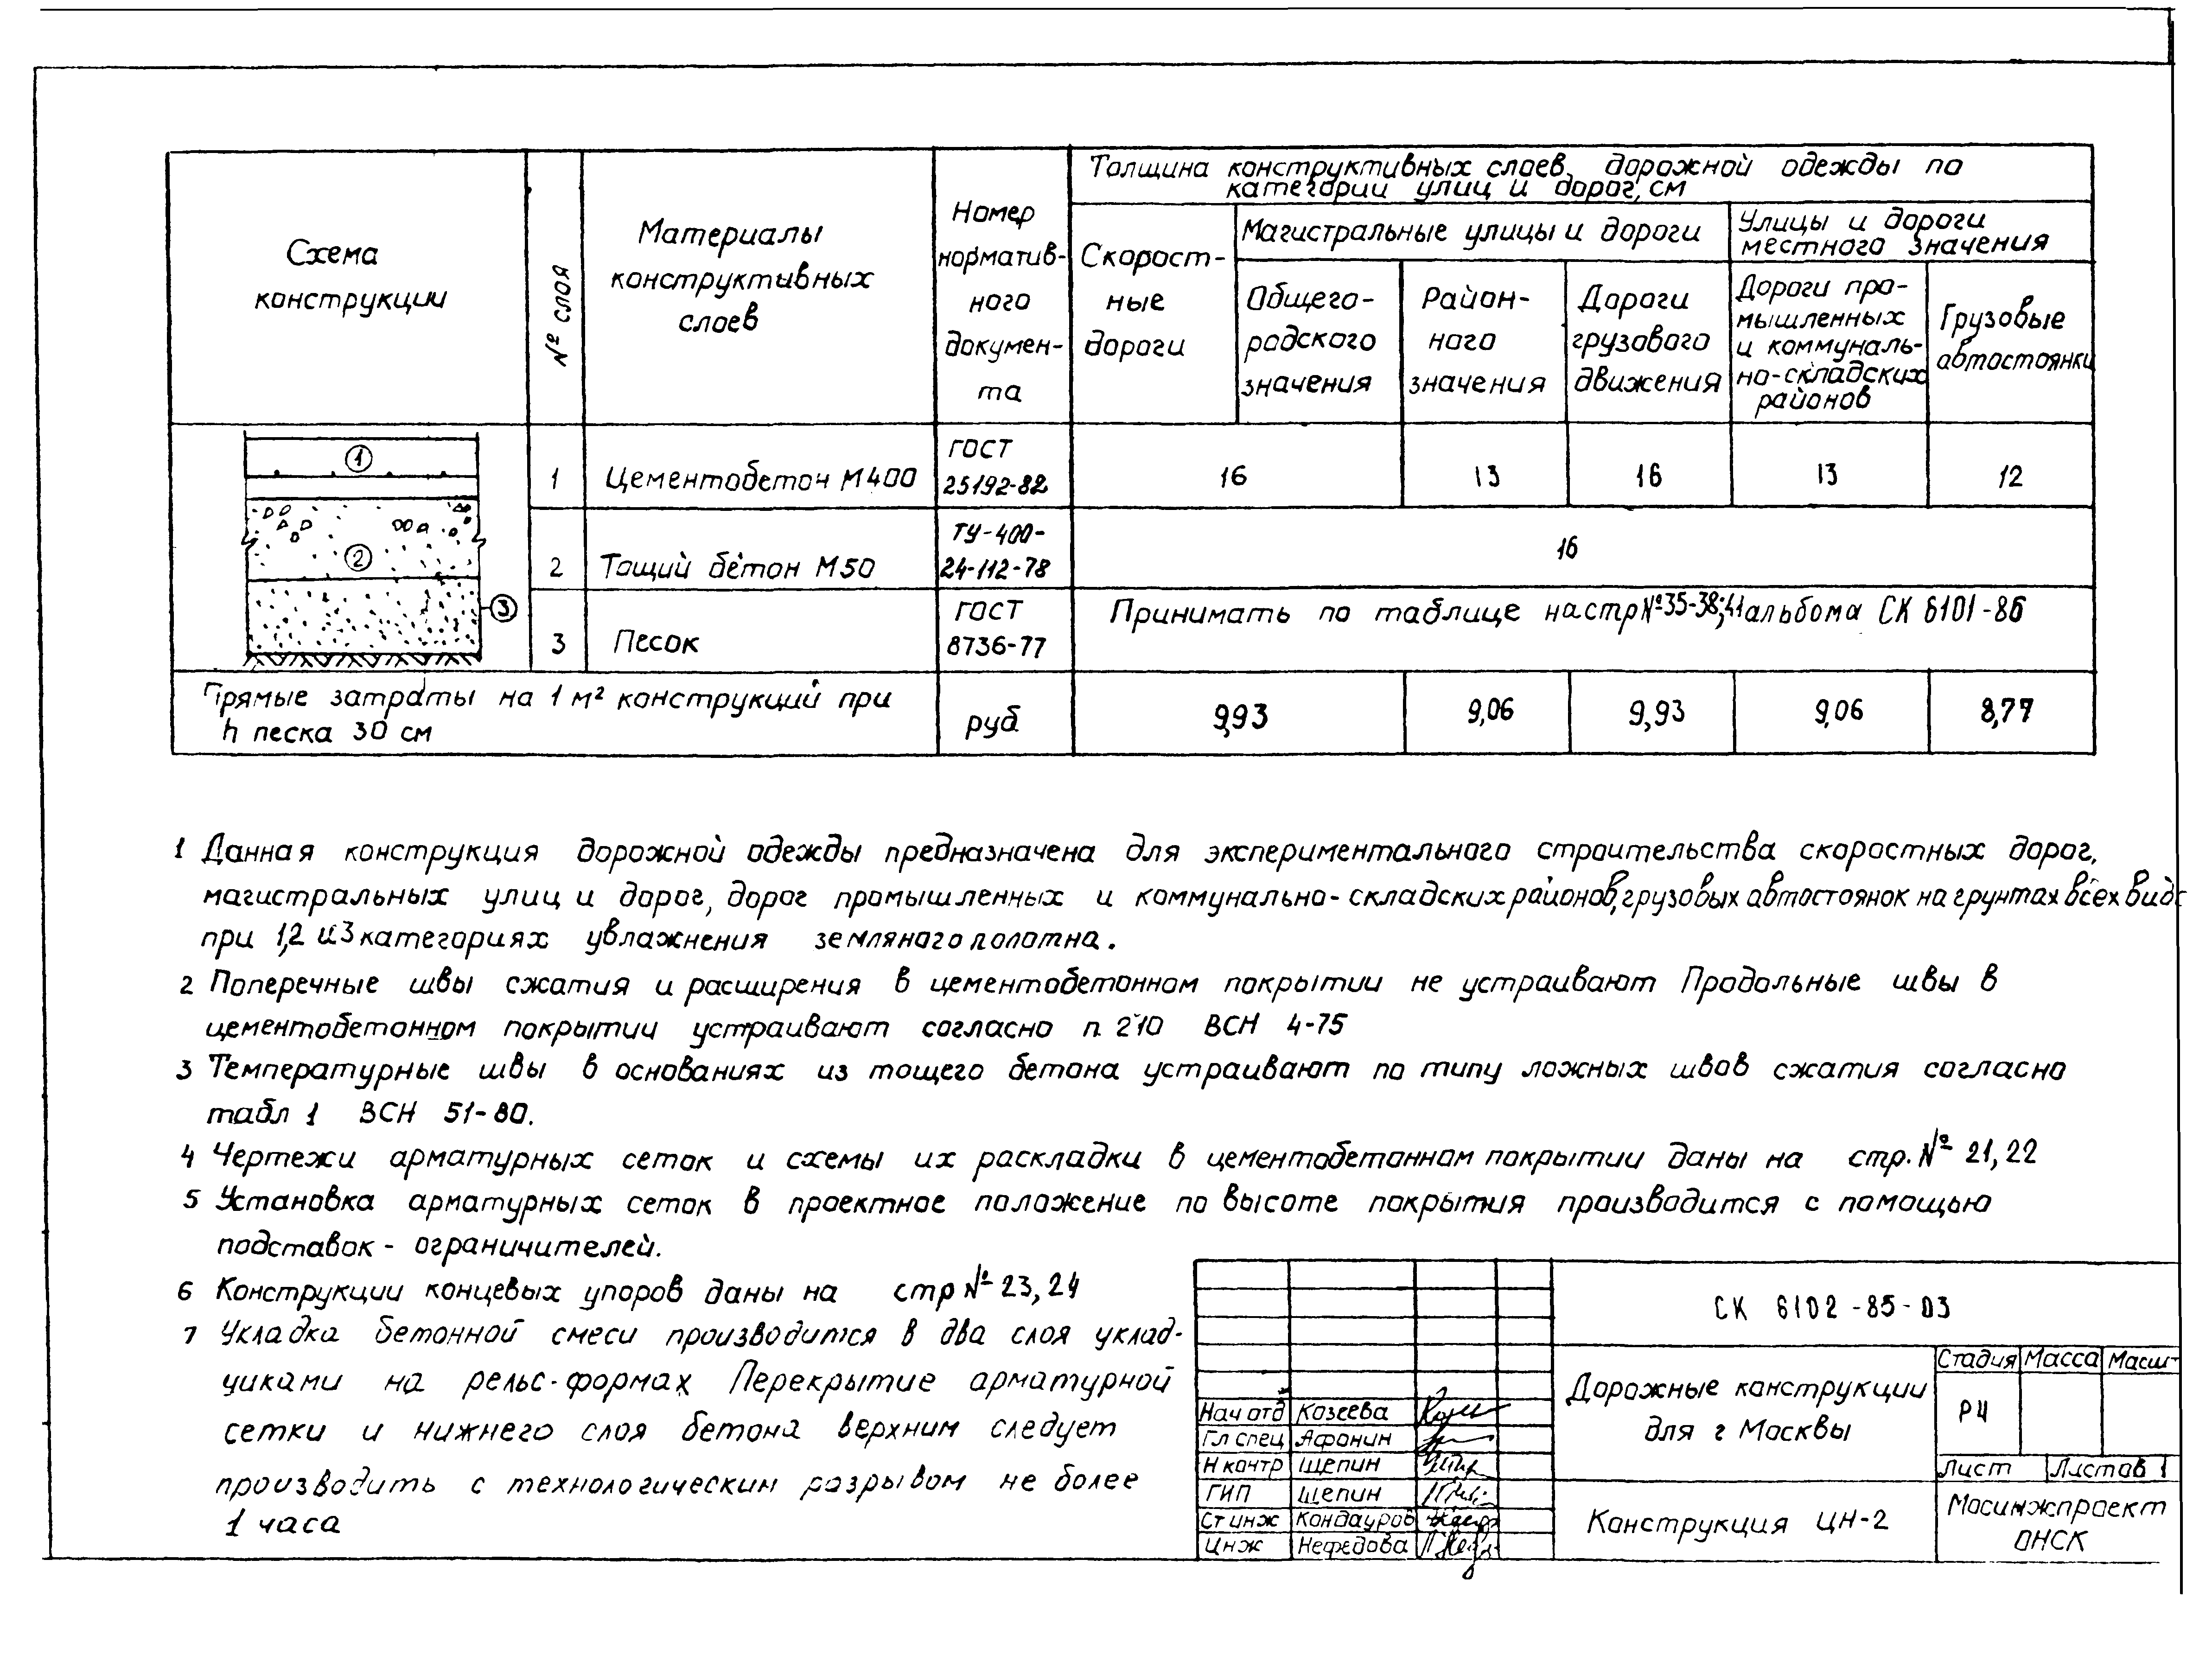 Толщина конструктивных слоев дорожной одежды по
категории улиц и дорог, см
Схема
конструкции
№ слоя
Материалы
конструктивных
слоев
Номер
норматив-
ного
докумен-
та
Скорост-
ные
дороги
Магистральные улицы и дороги
Общего-
родского
значения
Район-
ного
значения
Дороги
грузового
движения
Улицы и дороги
местного значения
Дороги про-
мышленных
и коммуналь-
но-складских
районов
Грузовые
автостоянки
1
2
3
1 Цементобетон М400 ГОСТ
25192-82
16 13 16 13 12
2 Тощий бетон М50 ТУ-400-
24-112-78
16
3 Песок ГОСТ
8736-77
Принимать по таблице на стр №35-38;41 альбома СК 6101-86
Прямые затраты на 1 м² конструкций при
h песка 30 см
руб 9,93 9,06 9,93 9,06 8,77
1 Данная конструкция дорожной одежды предназначена для экспериментального строительства скоростных дорог,
магистральных улиц и дорог, дорог промышленных и коммунально-складских районов, грузовых автостоянок на грунтах всех видо
при 1,2 и 3 категориях увлажнения земляного полотна.
2 Поперечные швы сжатия и расширения в цементобетонном покрытии не устраивают Продольные швы в
цементобетонном покрытии устраивают согласно п. 2.10 ВСН 4-75
3 Температурные швы в основаниях из тощего бетона устраивают по типу ложных швов сжатия согласно
табл 1 ВСН 51-80.
4 Чертежи арматурных сеток и схемы их раскладки в цементобетонном покрытии даны на стр. № 21, 22
5 Установка арматурных сеток в проектное положение по высоте покрытия производится с помощью
подставок - ограничителей.
6 Конструкции концевых упоров даны на стр № 23, 24
7 Укладка бетонной смеси производится в два слоя уклад-
чиками на рельс-формах Перекрытие арматурной
сетки и нижнего слоя бетона верхним следует
производить с технологическим разрывом не более
1 часа
СК 6102-85-03
Дорожные конструкции
для г Москвы
Стадия Масса Масш
РЧ
Лист Листов 1
Конструкция ЦН-2
Мосинжпроект
ОНСК
Нач отд Козеева
Гл спец Афонин
Н контр Щепин
ГИП Щепин
Ст инж Кондауров
Инж Нефедова